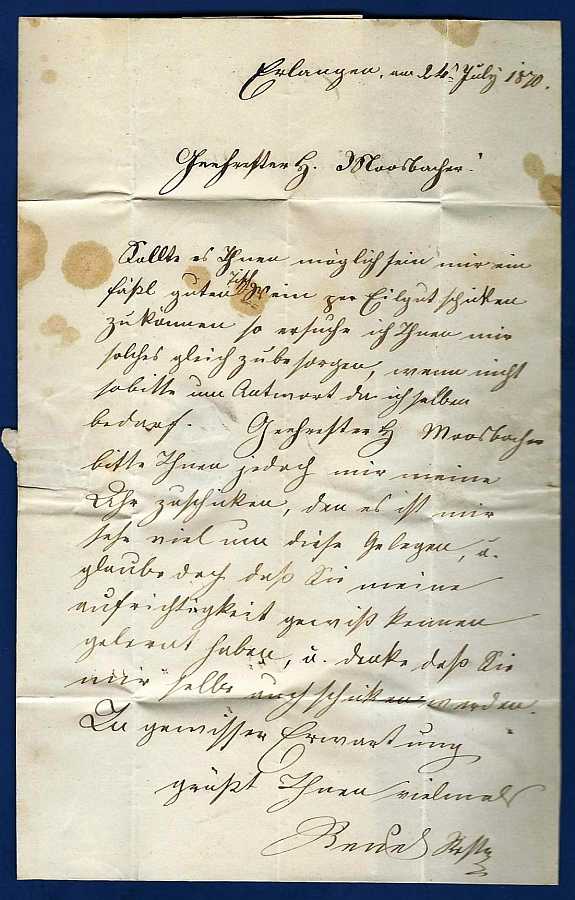 Erlangen, am 24t July 1870.
Geehrtester H. Moosbacher!
Sollte es Ihnen möglich sein mir ein
fäßl guten Tisch Wein per Eilgut schicken
zu können so ersuche ich Ihnen mir
solches gleich zu besorgen, wenn nicht
so bitte um Antwort da ich selben
bedarf. Geehrtester H Moosbacher
bitte Ihnen jedoch mir meine
Uhr zuschicken, den es ist mir
sehr viel um diese Gelegen, u.
glaube doch daß Sie meine
aufrichtigkeit gewiß kennen
gelernt haben, u. denke daß Sie
mir selbe auch schicken werden.
In gewisser Erwartung
grüßt Ihnen vielmals